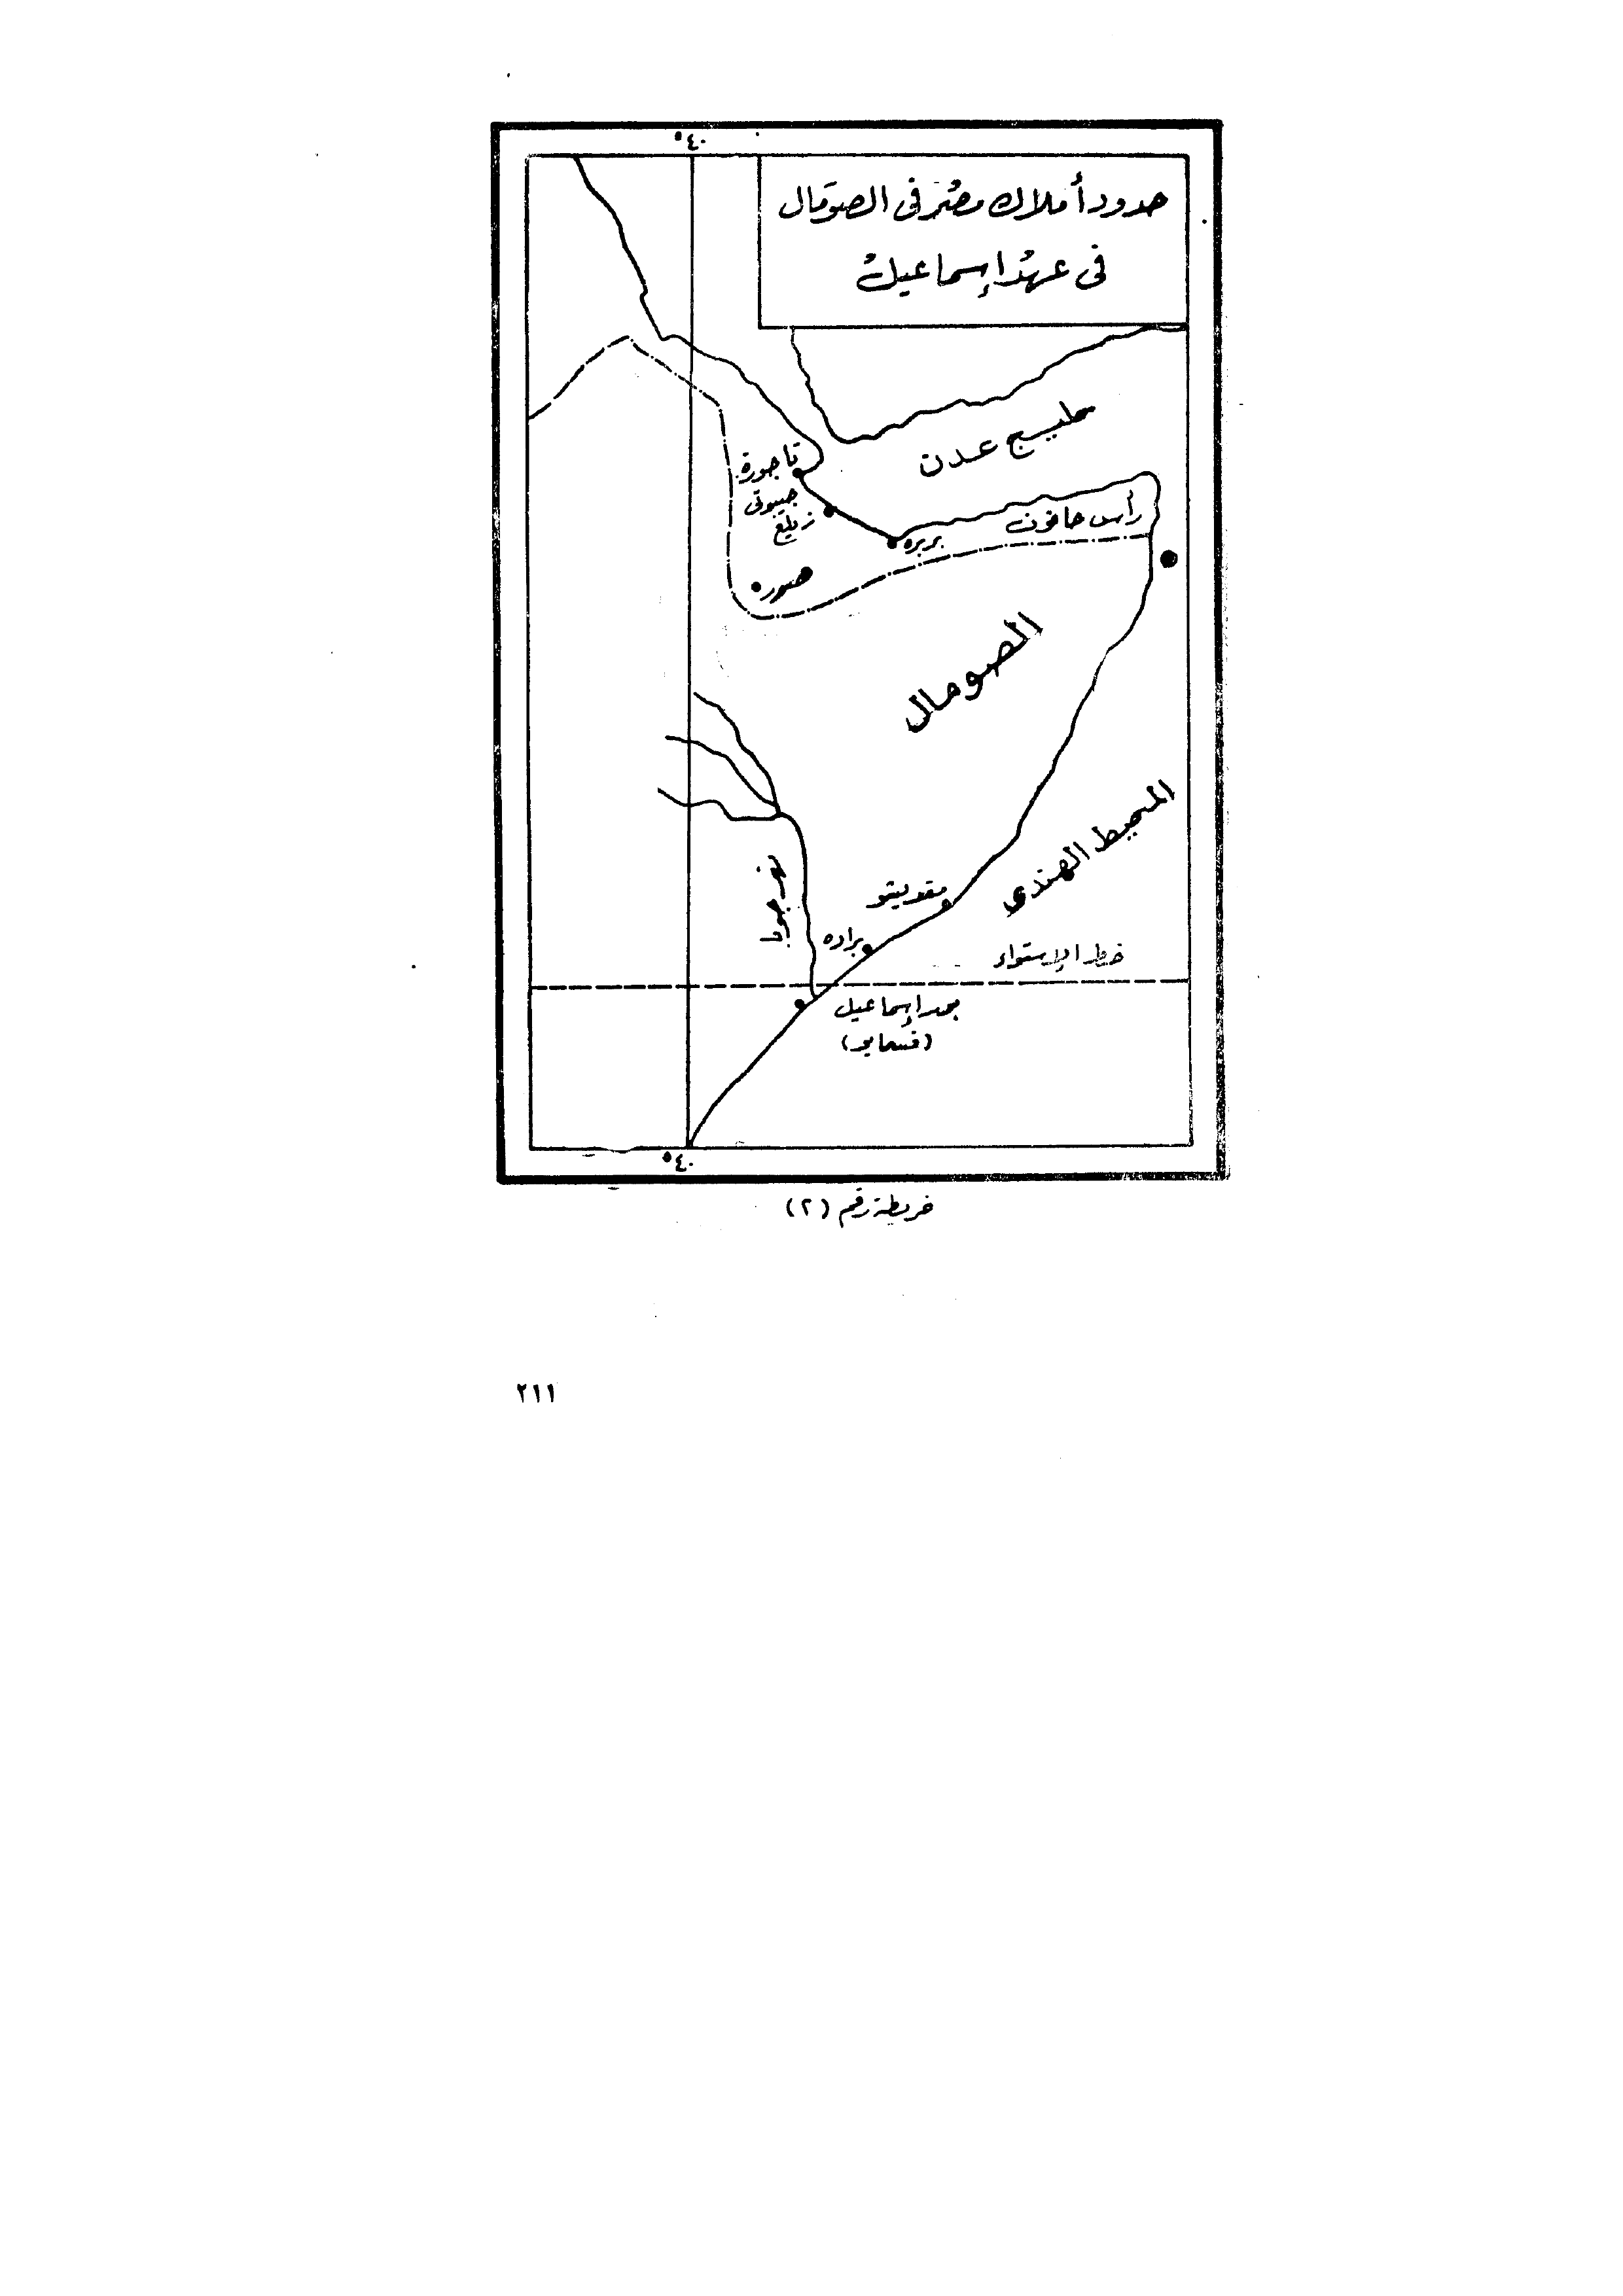 °٤٠
حدود أملاك مصر فى الصومال
فى عهد إسماعيل
خليج عدن
تاجورة
جيبوتى
زيلع
رأس حافون
بربره
هرر
الصومال
المحيط الهندى
نهر جوبا
مقديشو
براوه
خط الإستواء
إسماعيل
(قسمايو)
°٤٠
خريطة رقم (٢)
٢١١